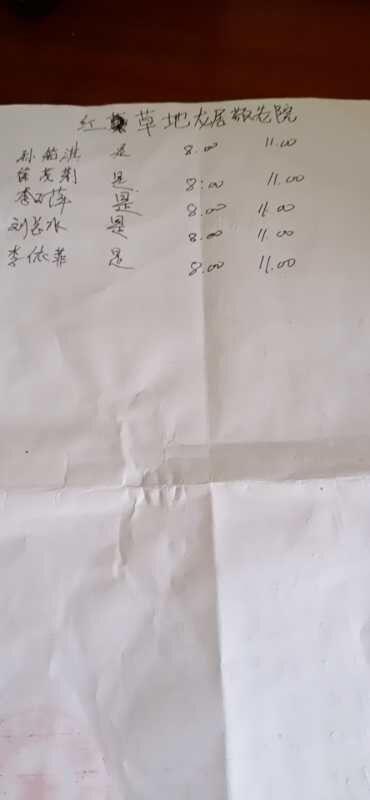 红草地友居敬老院
孙 洪 是 8.00 11.00
是 8:00 11.00
李 萍 是 8.00 11.00
刘 冰 是 8.00 11.00
李依菲 是 8.00 11.00